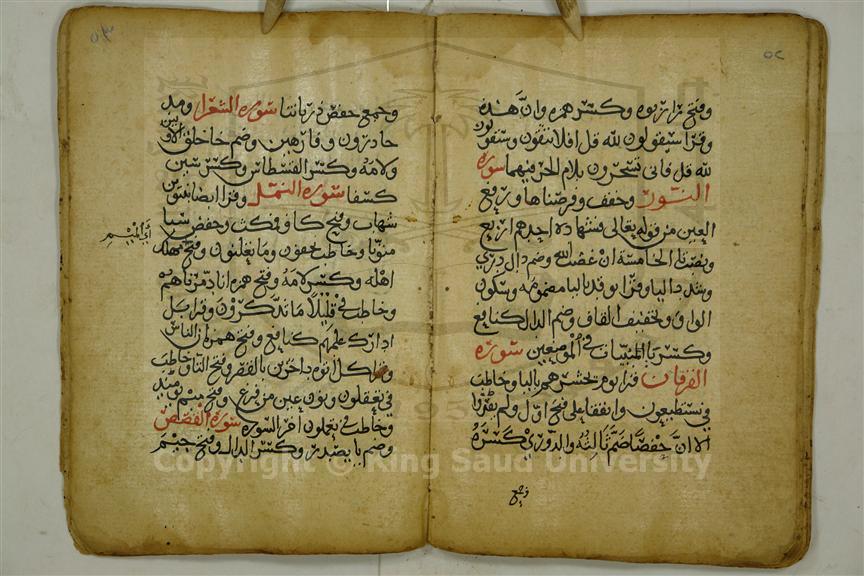 ٥٢
وفتح راربوه وكسر همزه وان هذه
وقرا سيقولون لله قل افلا تتقون وستقولون
لله قل فانى تسحرون بلام الجر فيهما سورة
النور وخفف وفرضناها ورفع
العين من قوله تعالى فشهادة احدهم اربع
وبضتا الخامسة ان غضب الله وضم دال دري
وشدد اليا وقرا يوقد باليا مضمومة وسكون
الواو وتخفيف القاف وضم الدال كنافع
وكسر يا المبينات في الموضعين سورة
الفرقان قرا يوم نحشرهم باليا وخاطب
في تستطيعون واتفقا على فتح اول ولم يقتروا
الا ان حفصا ضم ثالثه والدوري كسره
وجمع
٥٣
وجمع حفص ذرياتنا سورة الشعرا ومد
حاذرون وفارهين وضم خا خلق الاولين
ولامه وكسر القسطاس وكسر سين
كسفا سورة النمل وقرا ايضا بتنوين
شهاب وفتح كاف فمكث وحفص سبا
منونا وخاطب تخفون وما تعلنون وفتح مهلك
اهله وكسر لامه وفتح همزه انا دمرناهم
وخاطب في قليلا ما تذكرون وقرا بل
ادارك علمهم كنافع وفتح همز ان الناس
وكل اتوه داخرين بالقصر وفتح التا وخاطب
في تفعلون ونون عين من فزع وفتح ميم يومئذ
وخاطب في تعملون اخر السوره سورة القصص
وضم يا يصدر وكسر الدال وفتح جيم
أي الميم
Copyright © King Saud University